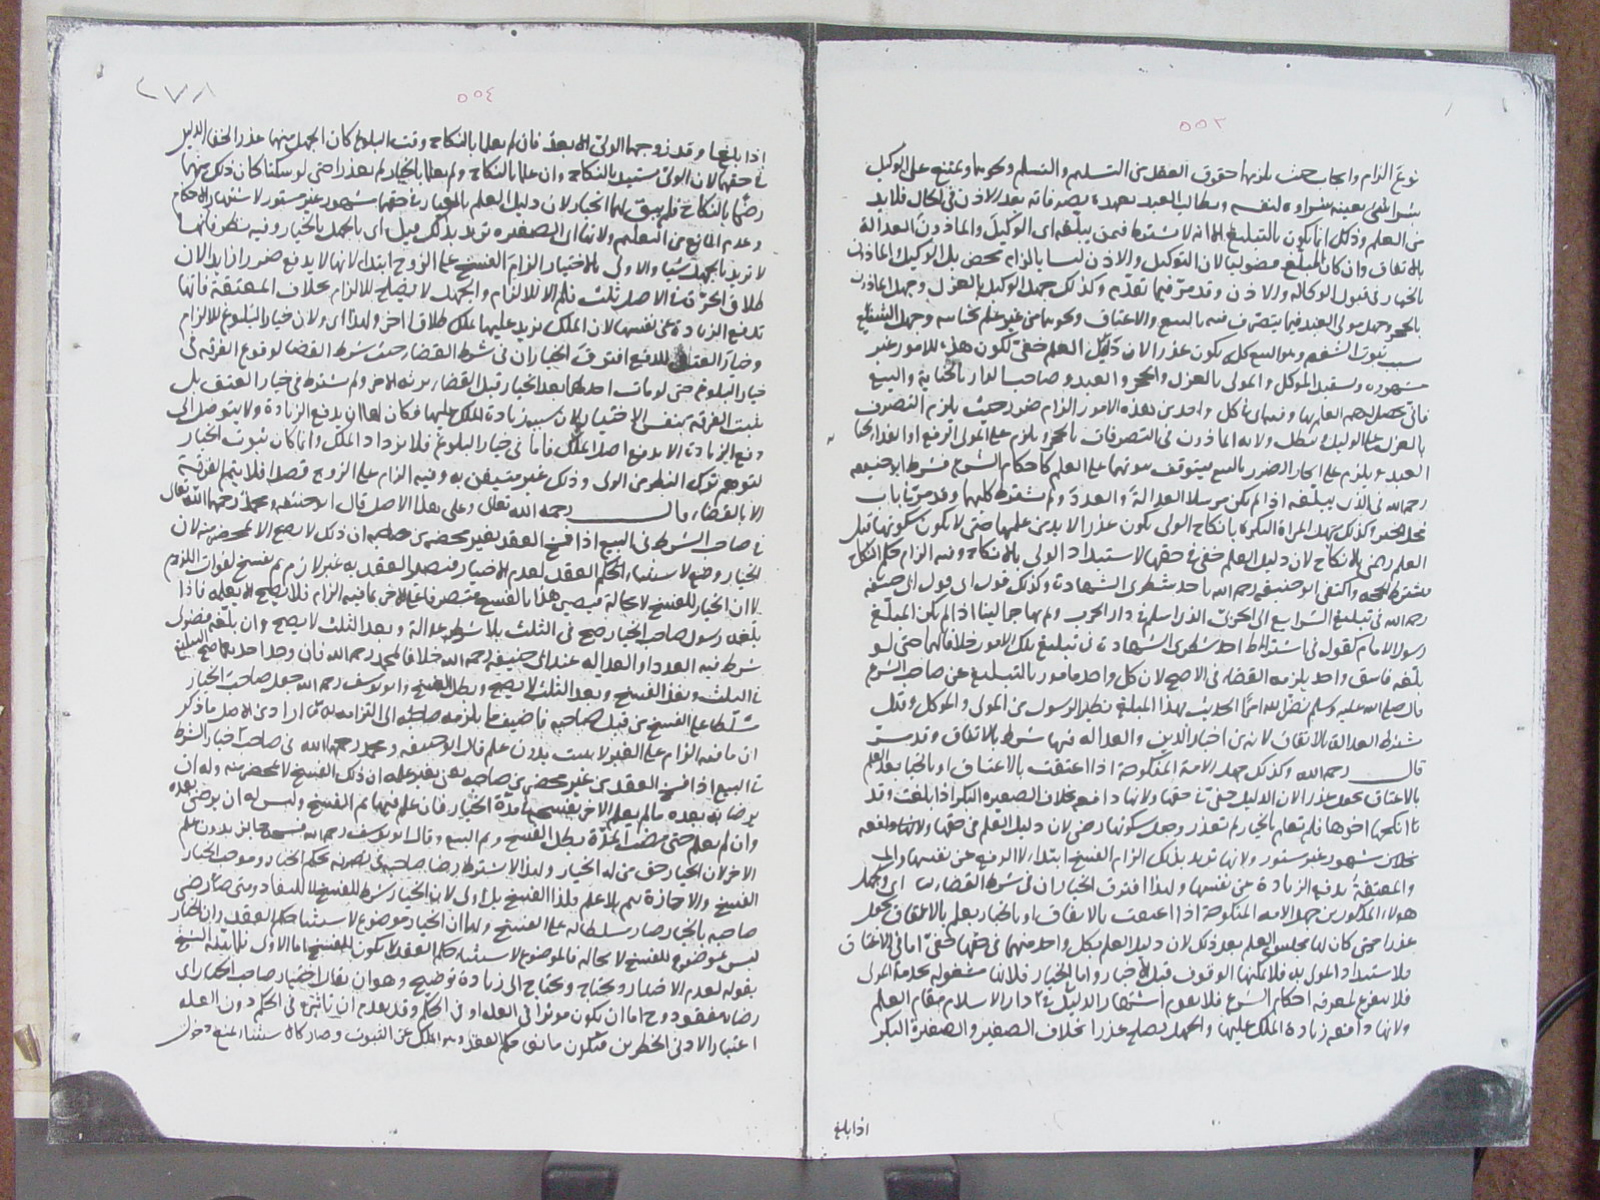 ٥٥٣
نوع الزام وايجاب حيث يلزمها حقوق العقد من التسليم والتسلم ونحوهما ويمتنع على الوكيل
شرا شئ بعينه لنفسه ويطالب العبد بعهدة تصرفاته بعد الاذن في الحال فلابد
من العلم وذلك انما يكون بالتبليغ الا انه لا يشترط فيمن يبلغه اى الوكيل والماذون العدالة
بالاتفاق وان كان المبلغ فضوليا لان التوكيل والاذن ليسا بالزام محض بل الوكيل والماذون
بالخيار في قبول الوكالة والاذن وقد مر فيما تقدم وكذلك جهل الوكيل بالعزل وجهل الماذون
بالحجر وجهل مولى العبد فيما يتصرف فيه بالبيع والاعتاق ونحوهما من غير علم بجنايته وجهل الشفيع
بسبب ثبوت الشفعة وهو البيع كل يكون عذرا لان دليل العلم خفى لكون هذه الامور غير
مشهورة ويستبد الموكل والمولى بالعزل والحجر والعبد وصاحب الدار بالجناية والبيع
فانى يحصل لهم العلم بها وفى كل واحد من هذه الامور الزام ضرر حيث يلزم التصرف
بالعزل على الوكيل ولاية الماذون في التصرفات بالحجر ويلزم على المولى الدفع او الفدا
ويلزم على الجار الضرر بالبيع فيتوقف ثبوتها على العلم كاحكام الشرع فشرط ابو حنيفة
رحمه الله في الذى يبلغه اذا لم يكن مرسلا العدالة او العدد ولم يشترط كليهما وقد مر في باب
محل الخبر وكذلك جهل المراة البكر بانكاح الولى يكون عذرا لا يدين عليها حتى لا يكون سكوتها قبل
العلم رضى بالانكاح لان دليل العلم خفى في حقها لاستبداد الولى بالانكاح وفيه الزام حكم النكاح
فيشترط واكتفى ابو حنيفة رحمه الله باحد شطرى الشهادة وكذلك قول اى قول ابى حنيفة
رحمه الله في تبليغ الشرايع الى الحربى الذى اسلم في دار الحرب ولم يهاجر الينا اذا لم يكن المبلغ
رسول الامام كقوله في اشتراط احد شطرى الشهادة في تبليغ تلك الامور خلافا لهما حتى لو
بلغه فاسق واحد يلزمه القضاء في الاصح لان كل واحد مامور بالتبليغ عن صاحب الشرع
قال صلى الله عليه وسلم نضر الله امرا الحديث فهذا المبلغ نظير الرسول من المولى والموكل وقيل
يشترط العدالة بالاتفاق لانه من اخبار الدين والعدالة فيها شرط بالاتفاق وقد مر
قال رحمه الله وكذلك جهل الامة المنكوحة اذا اعتقت بالاعتاق او بالخيار بعد العلم
بالاعتاق يجعل عذرا لان الدليل خفى في حقها ولانها دافعة بخلاف الصغيرة البكر اذا بلغت وقد
انكحها اخوها فلم تعلم بالخيار لم تعذر وجعل سكوتها رضى لان دليل العلم في حقها
مشهور غير مستور ولانها تريد بذلك الزام الفسخ ابتداء لا الدفع عن نفسها
والمعتقة تدفع الزيادة عن نفسها ولهذا افترق الخياران في شرط القضاء اى وجهل
هولاء المذكورين جهل الامة المنكوحة اذا اعتقت بالاعتاق او بالخيار بعلم بالاعتاق يجعل
عذرا حتى كان لها مجلس العلم بعد ذلك لان دليل العلم بكل واحد منهما في حقها خفى اما في الاعتاق
فلاستبداد المولى به فلا يمكنها الوقوف قبل الاخبار واما الخيار فلانها مشغولة بخدمة المولى
فلا تتفرغ لمعرفة احكام الشرع فلا يقوم اشتهار الدليل في دار الاسلام مقام العلم
ولانها دافعة زيادة الملك عليها والجهل يصلح عذرا بخلاف الصغير والصغيرة البكر
اذا بلغ
٢٧٨
٥٥٤
اذا بلغا وقد زوجهما الولى الابعد فان لم يعلما بالنكاح وقت البلوغ كان الجهل منهما عذرا لخفا الدليل
في حقهما لان الولى مستبد بالنكاح وان علما بالنكاح ولم يعلما بالخيار لم يعذرا حتى لو سكتا كان ذلك منهما
رضى بالنكاح فلم يبق لهما الخيار لان دليل العلم بالخيار في حقهما مشهور غير مستور لاشتهار الاحكام
وعدم المانع من التعليم ولانها اى الصغيرة تريد بذلك قيل اى بالجهل بالخيار وفيه نظر فانها
لا تريد بالجهل شيا والاولى بالاختيار الزام الفسخ على الزوج ابتداء لانها لا يدفع ضررا زايدا لان
طلاق الحرة في الاصل ثلث فلم الا للالزام والجهل لا يصلح للالزام بخلاف المعتقة فانها
تدفع الزيادة عن نفسها لان الملك يزيد عليها بملك طلاق اخر ولهذا اى ولان خيار البلوغ للالزام
وخيار العتق للدفع افترق الخياران في شرط القضاء حيث شرط القضا لوقوع الفرقة في
خيار البلوغ حتى لو مات احدهما بعد الخيار قبل القضاء يرثه الاخر ولم يشترط في خيار العتق بل
يثبت الفرقة بنفس الاختيار لان سببه زيادة الملك عليها فكان لها ان يدفع الزيادة ولا يتوصل الى
دفع الزيادة الا بدفع اصل الملك فاما في خيار البلوغ فلا يزداد الملك وانما كان ثبوت الخيار
لتوهم ترك النظر من الولى وذلك غير متيقن به وفيه الزام على الزوج قصدا فلا يتم الفرقة
الا بالقضاء قال رحمه الله تعالى وعلى هذا الاصل قال ابو حنيفة ومحمد رحمهما الله تعالى
في صاحب الشرط في البيع اذا فسخ العقد بغير محضر من صاحبه ان ذلك لا يصح الا بمحضر منه لان
الخيار وضع لاستثناء الحكم العقد لعدم الاختيار فيصير العقد به غير لازم ثم يفسخ لفوات اللزوم
لا ان الخيار للفسخ لا محالة فيصير هذا بالفسخ متصرفا على الاخر بما فيه الزام فلا يصح الا بعلمه فاذا
بلغه رسول صاحب الخيار صح في الثلث بلا شرط عدالة وبعد الثلث لا يصح وان بلغه فضولى
شرط فيه العدد او العدالة عند ابى حنيفة رحمه الله خلافا لمحمد رحمه الله فان وجد احدهما صح التبليغ
في الثلث ونفذ الفسخ وبعد الثلث لا يصح وبطل الفسخ وابو يوسف رحمه الله جعل صاحب الخيار
مسلطا على الفسخ من قبل صاحبه فاضيف ما يلزمه صاحبه الى التزامه
ان ما فيه الزام على الغير لا يثبت بدون علم قال ابو حنيفة ومحمد رحمهما الله في صاحب خيار الشرط
في البيع اذا فسخ العقد من غير محضر من صاحبه يعنى بغير علمه ان ذلك الفسخ لا بمحضر منه وله ان
يرضا به بعده ما لم يعلم الاخر بفسخه في مدة الخيار فان علم فيها تم الفسخ وليس له ان يرضى بعده
وان لم يعلم حتى مضت المدة بطل الفسخ وتم البيع وقال ابو يوسف رحمه الله فسخه جايز بدون علم
الاخر لان الخيار حق من له الخيار ولهذا لا يشترط رضا صاحبه في تصرفه بحكم الخيار وموجب الخيار
الفسخ والاجازة ثم بلا علم فلذا الفسخ بل اولى لان الخيار شرط للفسخ لا للنفاذ ومتى صار رضى
صاحبه بالخيار صار مسلطا له على الفسخ ولهما ان الخيار موضوع لاستثناء حكم العقد وان الخيار
ليس بموضوع للفسخ لا محالة فالموضوع لاستثناء حكم العقد لا يكون للفسخ اما الاول فلما بينه الشيخ
بقوله لعدم الاختيار ويحتاج الى زيادة توضيح وهو ان يقال اختيار صاحب الخيار اى
رضاه مفقود وح اما ان يكون موثرا في العلة او في الحكم وقد تقدم ان تاثيره في الحكم دون العلة
اعتبار الادنى الخطرين فيكون مانعا حكم العقد وهو الملك عن الثبوت وصار كالاستثناء لمنع دخول